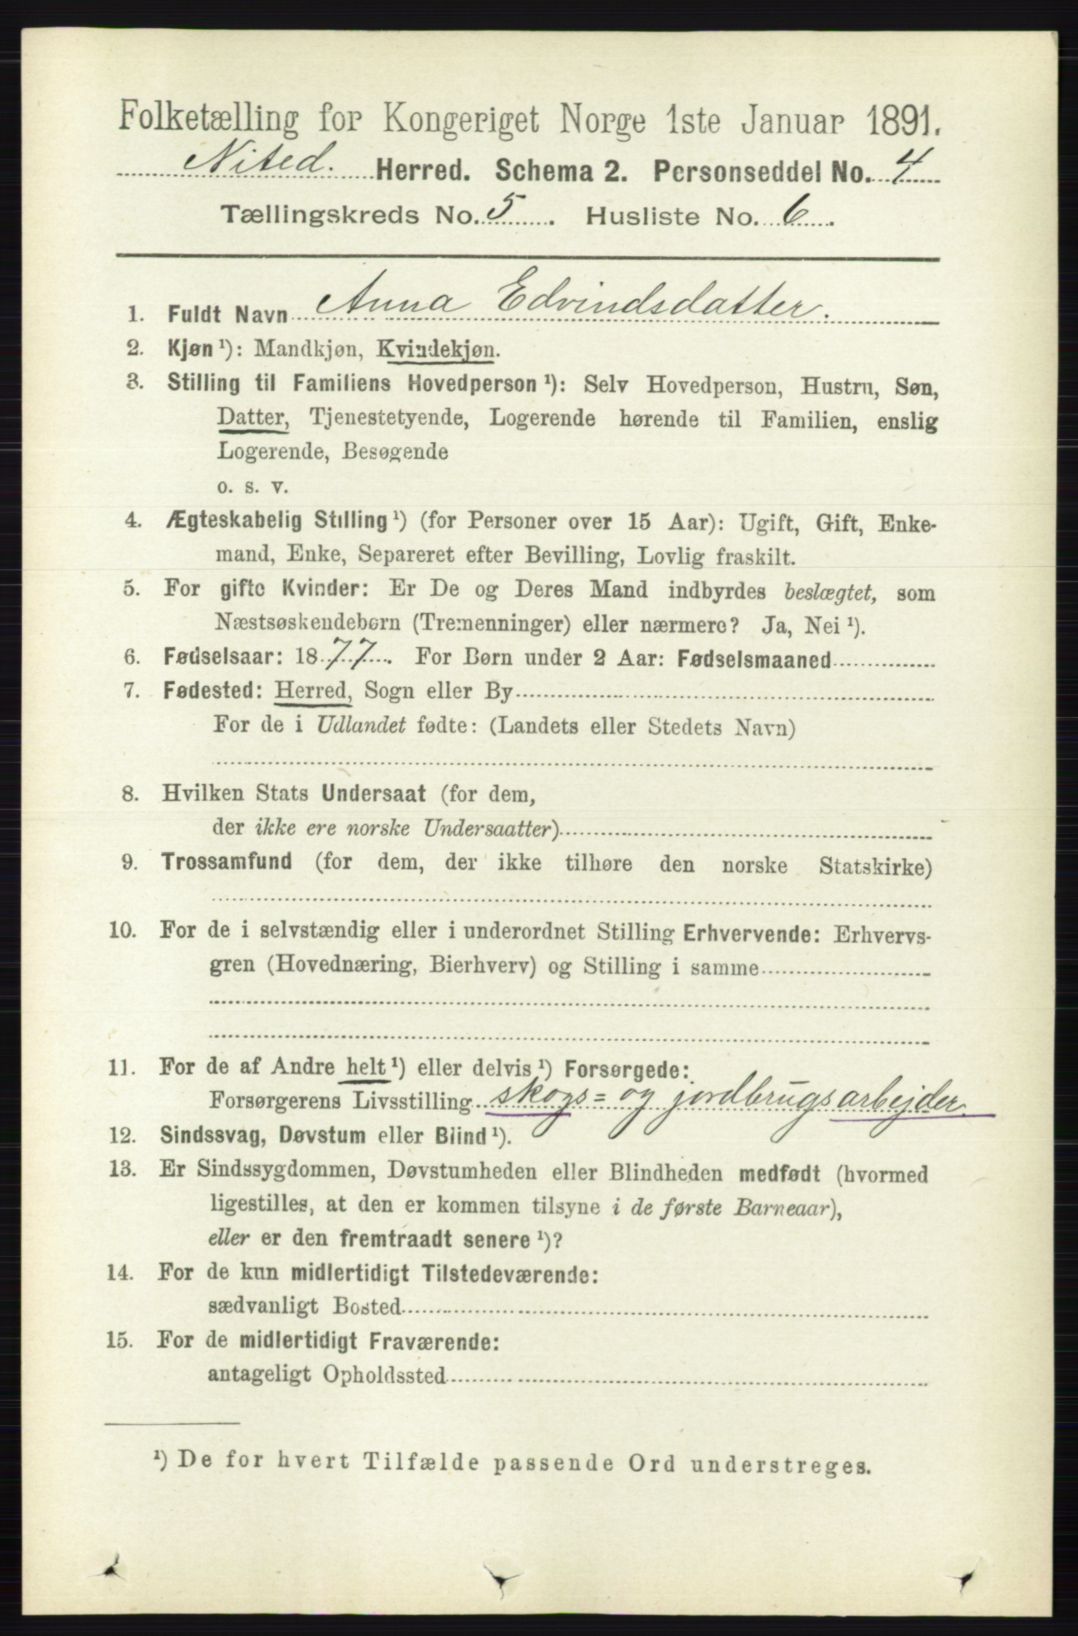 Folketælling for Kongeriget Norge 1ste Januar 1891.
Nited. Herred. Schema 2. Personseddel No. 4
Tællingskreds No. 5. Husliste No. 6.
1. Fuldt Navn Anna Edvindsdatter.
2. Kjøn ¹): Mandkjøn, Kvindekjøn.
3. Stilling til Familiens Hovedperson ¹): Selv Hovedperson, Hustru, Søn,
Datter, Tjenestetyende, Logerende hørende til Familien, enslig
Logerende, Besøgende
o. s. v.
4. Ægteskabelig Stilling ¹) (for Personer over 15 Aar): Ugift, Gift, Enke-
mand, Enke, Separeret efter Bevilling, Lovlig fraskilt.
5. For gifte Kvinder: Er De og Deres Mand indbyrdes beslægtet, som
Næstsøskendebørn (Tremenninger) eller nærmere? Ja, Nei ¹).
6. Fødselsaar: 1877. For Børn under 2 Aar: Fødselsmaaned
7. Fødested: Herred, Sogn eller By
For de i Udlandet fødte: (Landets eller Stedets Navn)
8. Hvilken Stats Undersaat (for dem,
der ikke ere norske Undersaatter)
9. Trossamfund (for dem, der ikke tilhøre den norske Statskirke)
10. For de i selvstændig eller i underordnet Stilling Erhvervende: Erhvervs-
gren (Hovednæring, Bierhverv) og Stilling i samme
11. For de af Andre helt ¹) eller delvis ¹) Forsørgede:
Forsørgerens Livsstilling skogs= og jordbrugsarbejder.
12. Sindssvag, Døvstum eller Blind ¹).
13. Er Sindssygdommen, Døvstumheden eller Blindheden medfødt (hvormed
ligestilles, at den er kommen tilsyne i de første Barneaar),
eller er den fremtraadt senere ¹)?
14. For de kun midlertidigt Tilstedeværende:
sædvanligt Bosted
15. For de midlertidigt Fraværende:
antageligt Opholdssted
¹) De for hvert Tilfælde passende Ord understreges.